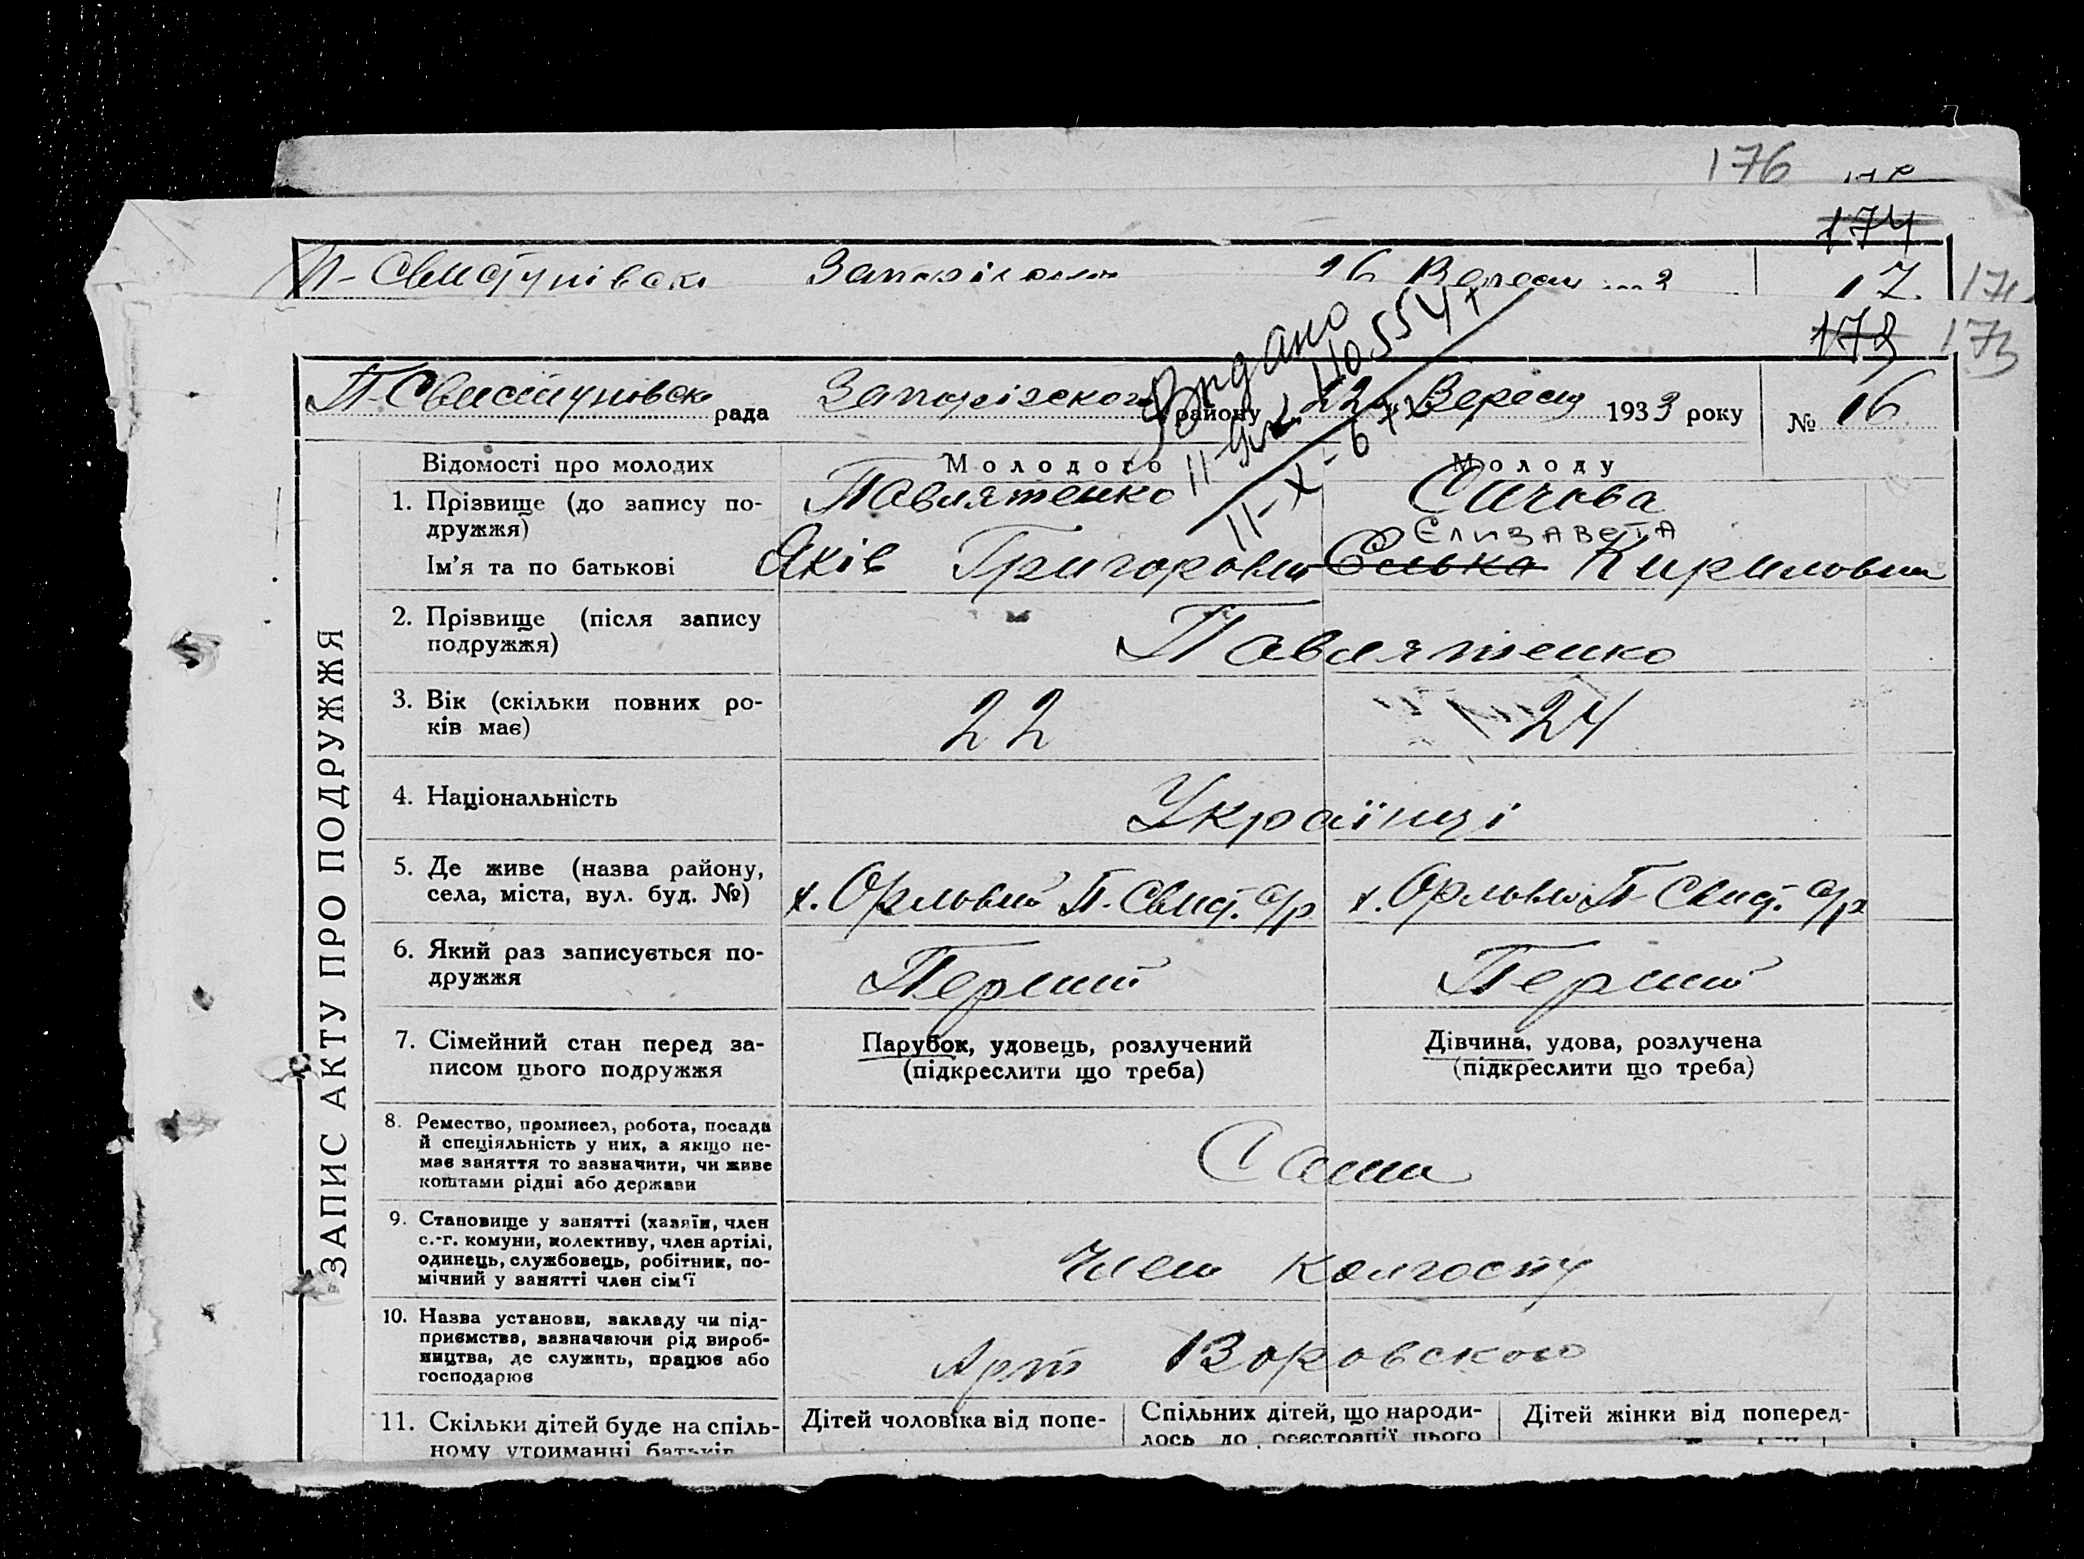 176
174
П-Свистунівск Запорізького 16 Вересн 17 174
173 173
П-Свистуновск рада Запорізского району 22 Вересня 1933 року № 16
Видано
110554
11-X-67
Відомості про молодих Молодого Молоду
1. Прізвище (до запису по-
дружжя) Павлятенко Сичова
Єлизавета
Ім'я та по батькові Яків Григорович Елька Кириловна
2. Прізвище (після запису
подружжя) Павлятенко
3. Вік (скільки повних ро-
ків має) 22 24
4. Національність Українці
5. Де живе (назва району,
села, міста, вул. буд. №) х. Орловий П. Свист. с/р х. Орловий П Свист. с/р
6. Який раз записується по-
дружжя Перший Перший
7. Сімейний стан перед за-
писом цього подружжя
Парубок, удовець, розлучений
(підкреслити що треба)
Дівчина, удова, розлучена
(підкреслити що треба)
8. Ремество, промисел, робота, посада
й спеціяльність у них, а якщо не-
має заняття то зазначити, чи живе
коштами рідні або держави
Сами
9. Становище у занятті (хазяїн, член
с.-г. комуни, колективу, член артілі,
одинець, службовець, робітник, по-
мічний у занятті член сім'ї
Член колгоспу
10. Назва установи, закладу чи під-
приємства, зазначаючи рід вироб-
ництва, де служить, працює або
господарює
Арт Воровського
11. Скільки дітей буде на спіль-
ному утриманні батьків
Дітей чоловіка від попе-
Спільних дітей, що народи-
лось до реєстрації цього
Дітей жінки від поперед-
ЗАПИС АКТУ ПРО ПОДРУЖЖЯ